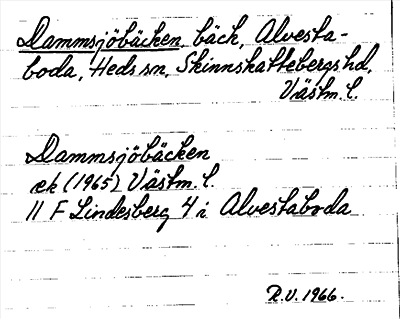 Dammsjöbäcken, bäck, Alvesta-
boda, Heds sn, Skinnskattebergs hd,
Västm. l.
Dammsjöbäcken
ek (1965) Västm. l.
11 F Lindesberg 4 i Alvestaboda
R.V. 1966.